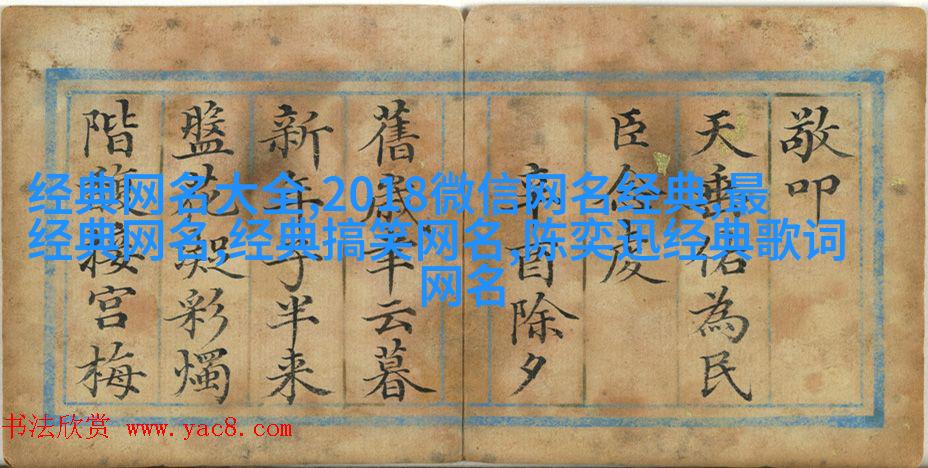 敬叩
天垂佑為民
臣念虔
辛酉除夕
舊歲半云暮
新年子半来
盤花凝彩燭
階馥接宮梅
经典网名大全,2018微信网名经典,最
经典网名,经典搞笑网名,陈奕迅经典歌词
网名
书法欣赏 www.yac8.com